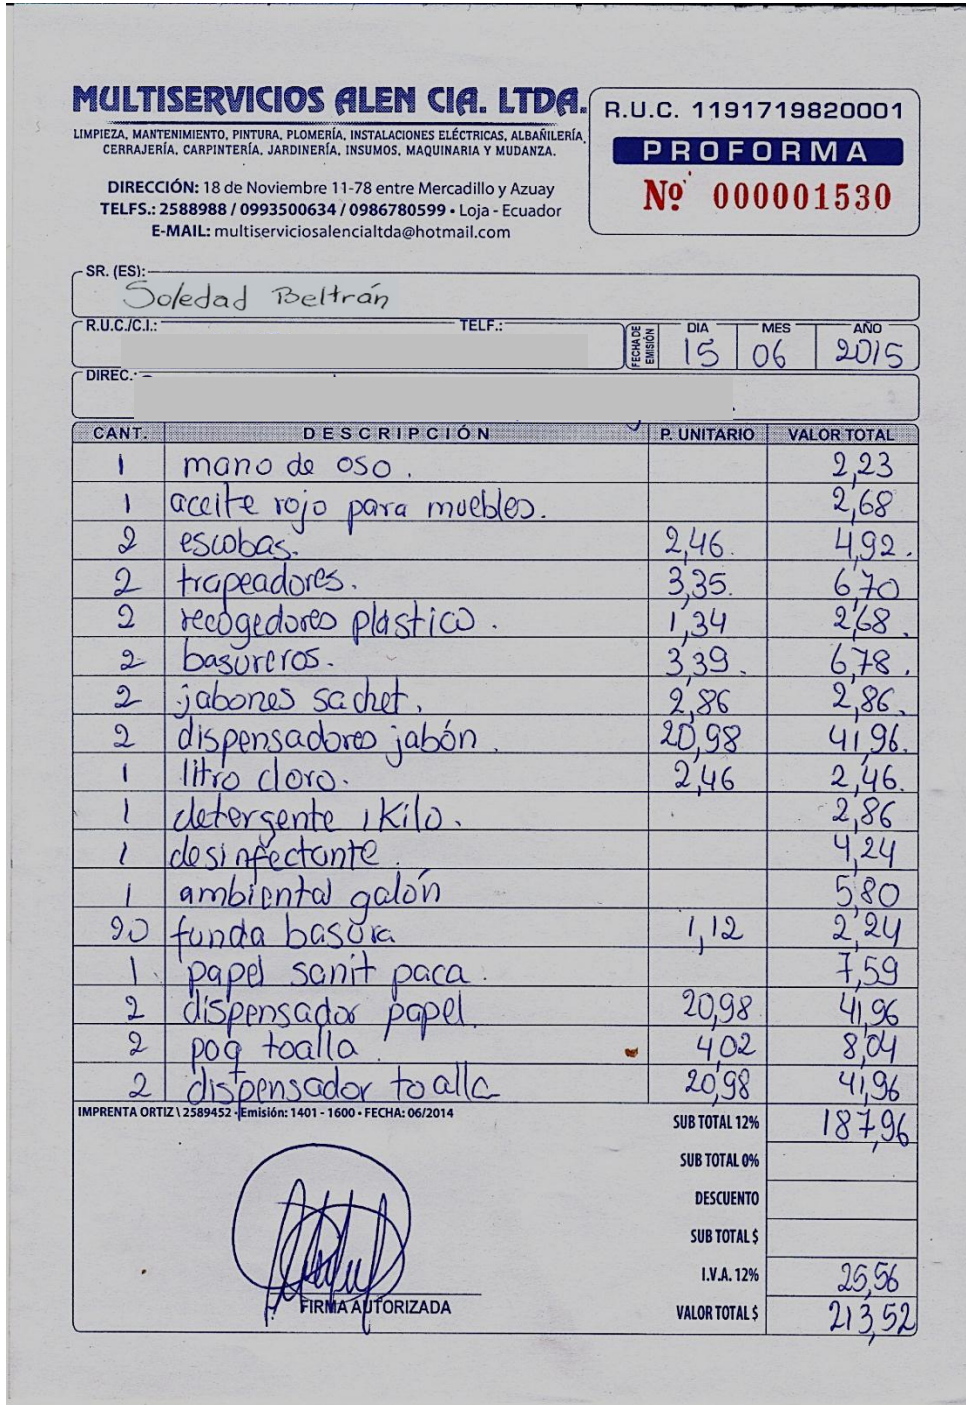 MULTISERVICIOS ALEN CIA. LTDA.
LIMPIEZA, MANTENIMIENTO, PINTURA, PLOMERÍA, INSTALACIONES ELÉCTRICAS, ALBAÑILERÍA,
CERRAJERÍA, CARPINTERÍA, JARDINERÍA, INSUMOS, MAQUINARIA Y MUDANZA.
DIRECCIÓN: 18 de Noviembre 11-78 entre Mercadillo y Azuay
TELFS.: 2588988 / 0993500634 / 0986780599 • Loja - Ecuador
E-MAIL: multiserviciosalencialtda@hotmail.com
R.U.C. 1191719820001
PROFORMA
Nº 000001530
SR. (ES):
Soledad Beltrán
R.U.C./C.I.: TELF.: FECHA DE EMISIÓN DIA MES AÑO
15 06 2015
DIREC.:
CANT. DESCRIPCIÓN P. UNITARIO VALOR TOTAL
1 mano de oso. 2,23
1 aceite rojo para muebles. 2,68
2 escobas. 2,46. 4,92.
2 trapeadores. 3,35. 6,70
2 recogedores plastico. 1,34 2,68.
2 basureros. 3,39. 6,78.
2 jabones sachet. 2,86 2,86.
2 dispensadores jabón. 20,98 41,96.
1 litro cloro. 2,46 2,46.
1 detergente 1 Kilo. 2,86
1 desinfectante. 4,24
1 ambiental galón 5,80
20 funda basura 1,12 2,24
1 papel sanit paca. 7,59
2 dispensador papel 20,98 41,96
2 paq toalla 4,02 8,04
2 dispensador toalla 20,98 41,96
IMPRENTA ORTIZ \ 2589452 • Emisión: 1401 - 1600 • FECHA: 06/2014
SUB TOTAL 12% 187,96
SUB TOTAL 0%
DESCUENTO
SUB TOTAL $
I.V.A. 12% 25,56
VALOR TOTAL $ 213,52
FIRMA AUTORIZADA